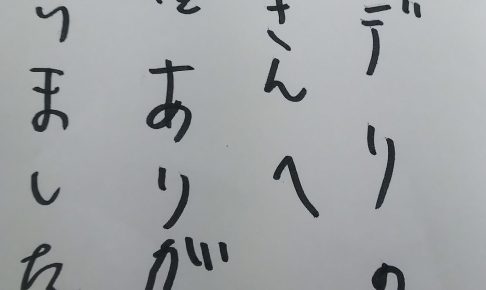 デリの
さんへ
ありが
りました